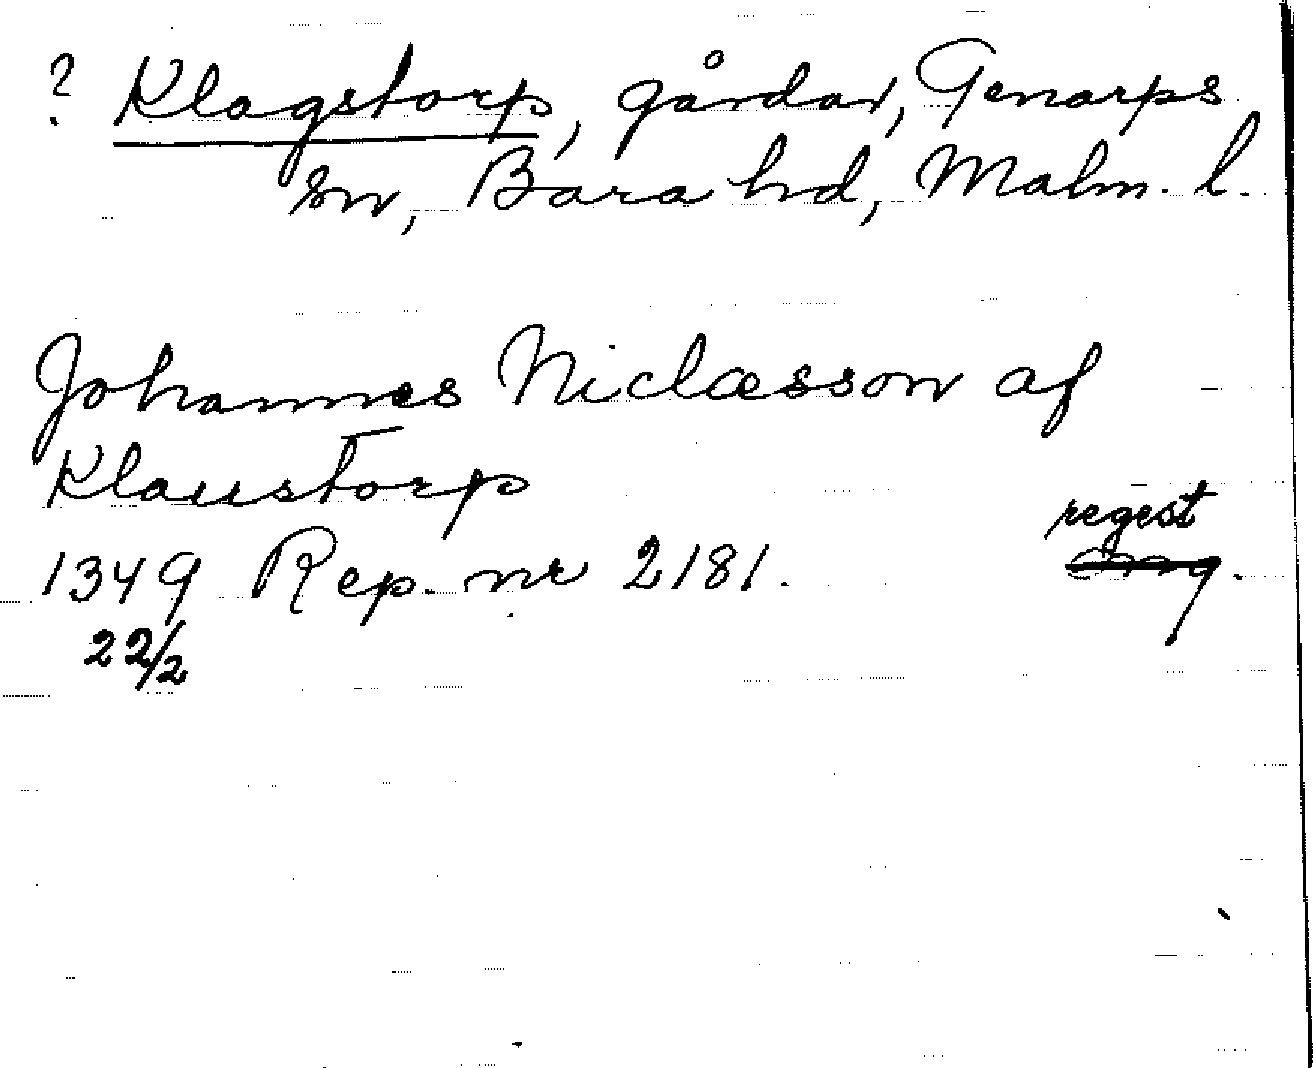 ? Klagstorp, gårdar, Genarps
sn, Bara hd, Malm. l.
Johannes Niclæsson af
Klaustorp
regest
1349 Rep. nr 2181. Orig.
22/2